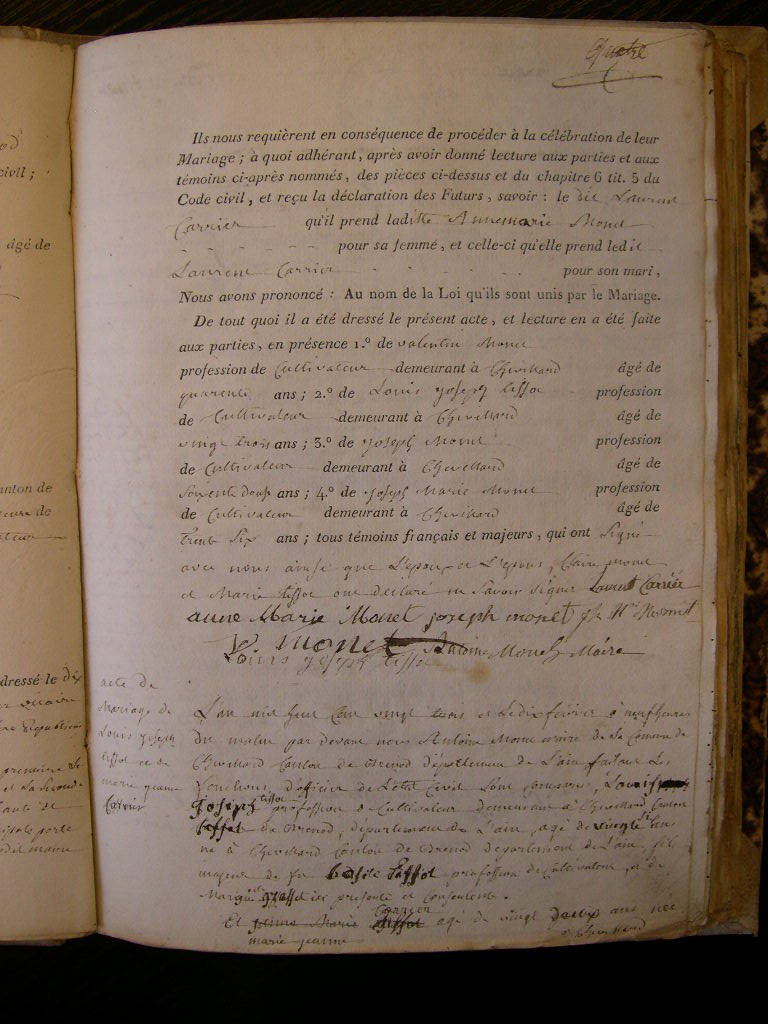 Quatre
Ils nous requièrent en conséquence de procéder à la célébration de leur
Mariage ; à quoi adhérant, après avoir donné lecture aux parties et aux
témoins ci-après nommés, des pièces ci-dessus et du chapitre 6 tit. 5 du
Code civil, et reçu la déclaration des Futurs, savoir : le dit Laurent
Carrier qu'il prend laditte Annemarie Monet
pour sa femme, et celle-ci qu'elle prend ledit
Laurent Carrier pour son mari,
Nous avons prononcé : Au nom de la Loi qu'ils sont unis par le Mariage.
De tout quoi il a été dressé le présent acte, et lecture en a été faite
aux parties, en présence 1.º de valentin Monet
profession de Cultivateur demeurant à Chevillard âgé de
quarente ans ; 2.º de Louis joseph tissot profession
de Cultivateur demeurant à Chevillard âgé de
vingt trois ans ; 3.º de joseph Monet profession
de Cultivateur demeurant à Chevillard âgé de
soixente douze ans ; 4.º de joseph Marie Monet profession
de Cultivateur demeurant à Chevillard âgé de
trente six ans ; tous témoins français et majeurs, qui ont signé
avec nous ainsi que L'epoux et L'epouse, Claire monet
et Marie tissot ont déclaré ne savoir signer Laurent Carrier
anne Marie Monet joseph monet jh Mie Monet
V. monet Antoine Monet Maire
Louis joseph tissot
acte de
Mariage de
Louis joseph
tissot et de
marie jeanne
Carrier
L'an mil huit cent vingt trois et le dix février à neuf heures
du matin par devant nous Antoine Monet maire de la Comune de
Chevillard Canton de Brenod département de L'ain faisant les
fonctions d'officier de L'état Civil sont comparus, Louis
joseph tissot profession de Cultivateur demeurant à Chevillard Canton
de Brenod, département de L'ain, agé de vingt ans
né à Chevillard Canton de Brenod département de L'ain, fils
majeur de feu Basile tissot profession de Cultivateur, et de
Marie ici présente et consentente.
Et Carrier agé de vingt deux ans née
marie jeanne à Chevillard